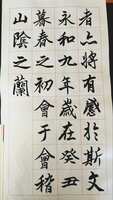 者亦將有感於斯文
永和九年歲在癸丑
暮春之初會于會稽
山陰之蘭